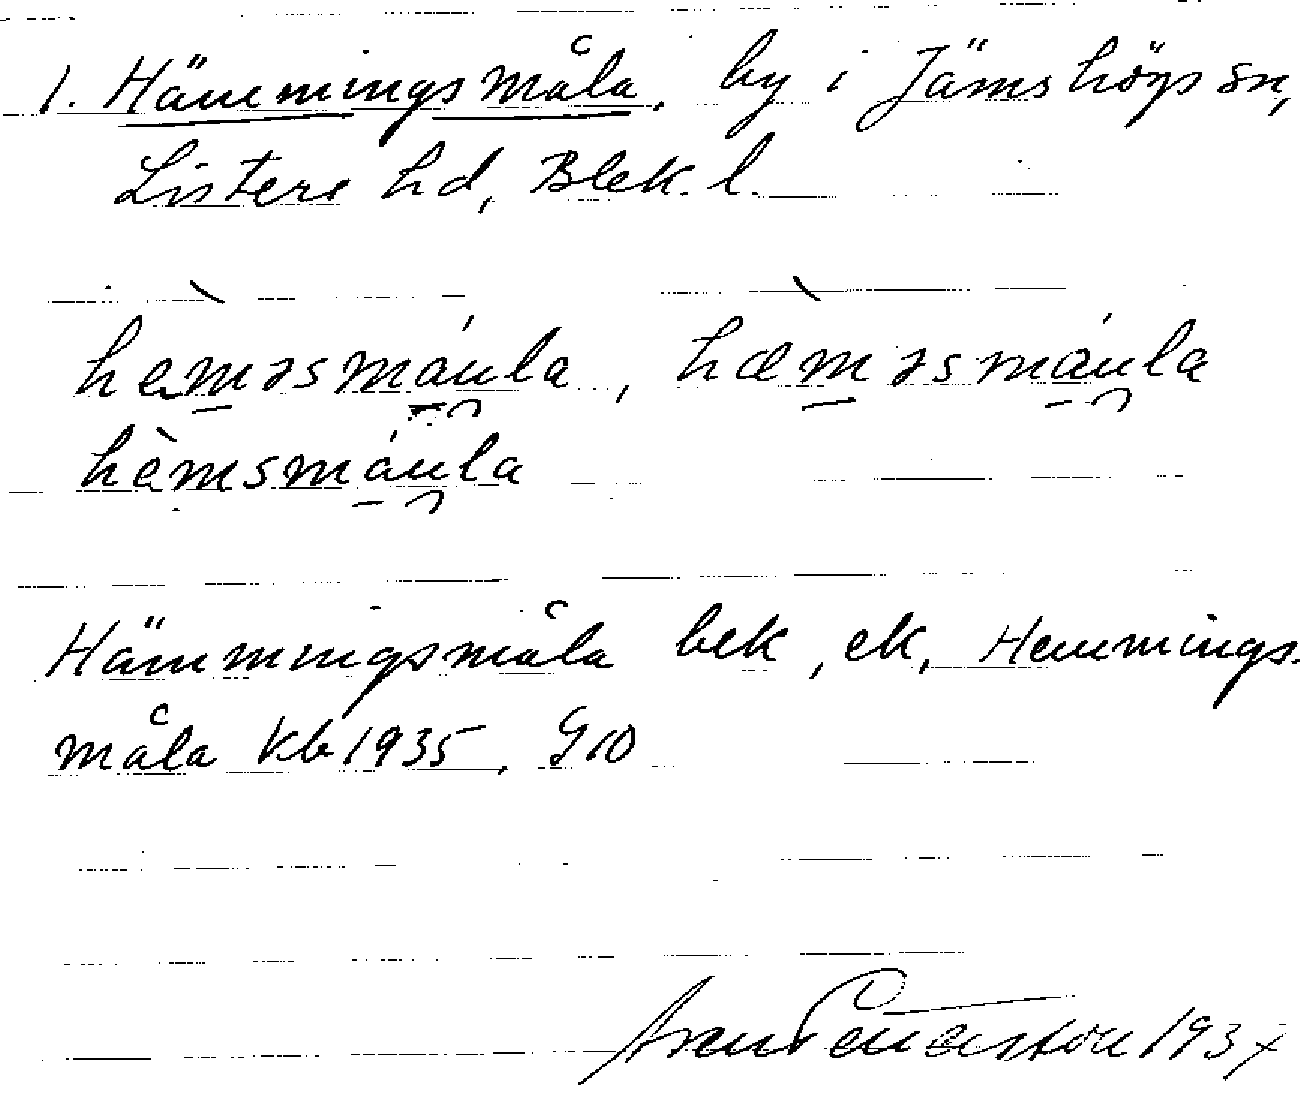 1. Hämmingsmåla, by i Jämshögs sn,
Listers hd, Blek. l.
hèməsmáula, hæ̀məsmáula
hèmsmáula
Hämmingsmåla bek, ek, Hemmings-
måla kb 1935. G10
1937